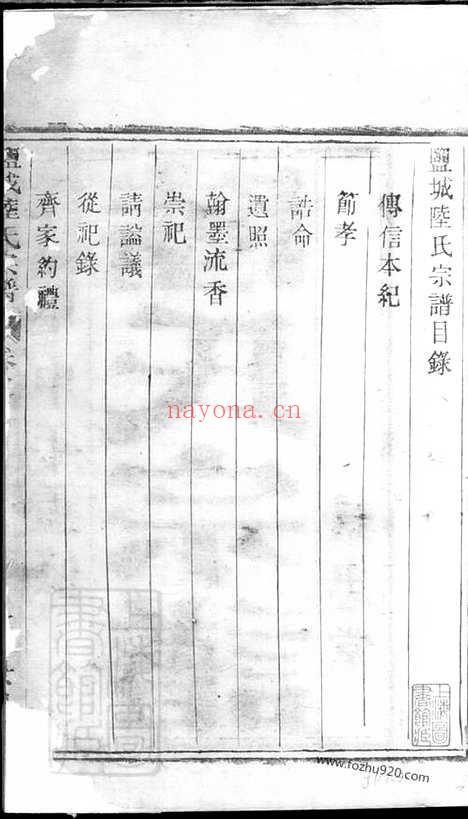 鹽城陸氏宗譜目錄
傳信本紀
節孝
誥命
遺照
翰墨流香
崇祀
請謚議
從祀錄
齊家約禮
鹽城陸氏宗譜
nayona.cn
上海圖書館藏
www.fozhu920.com